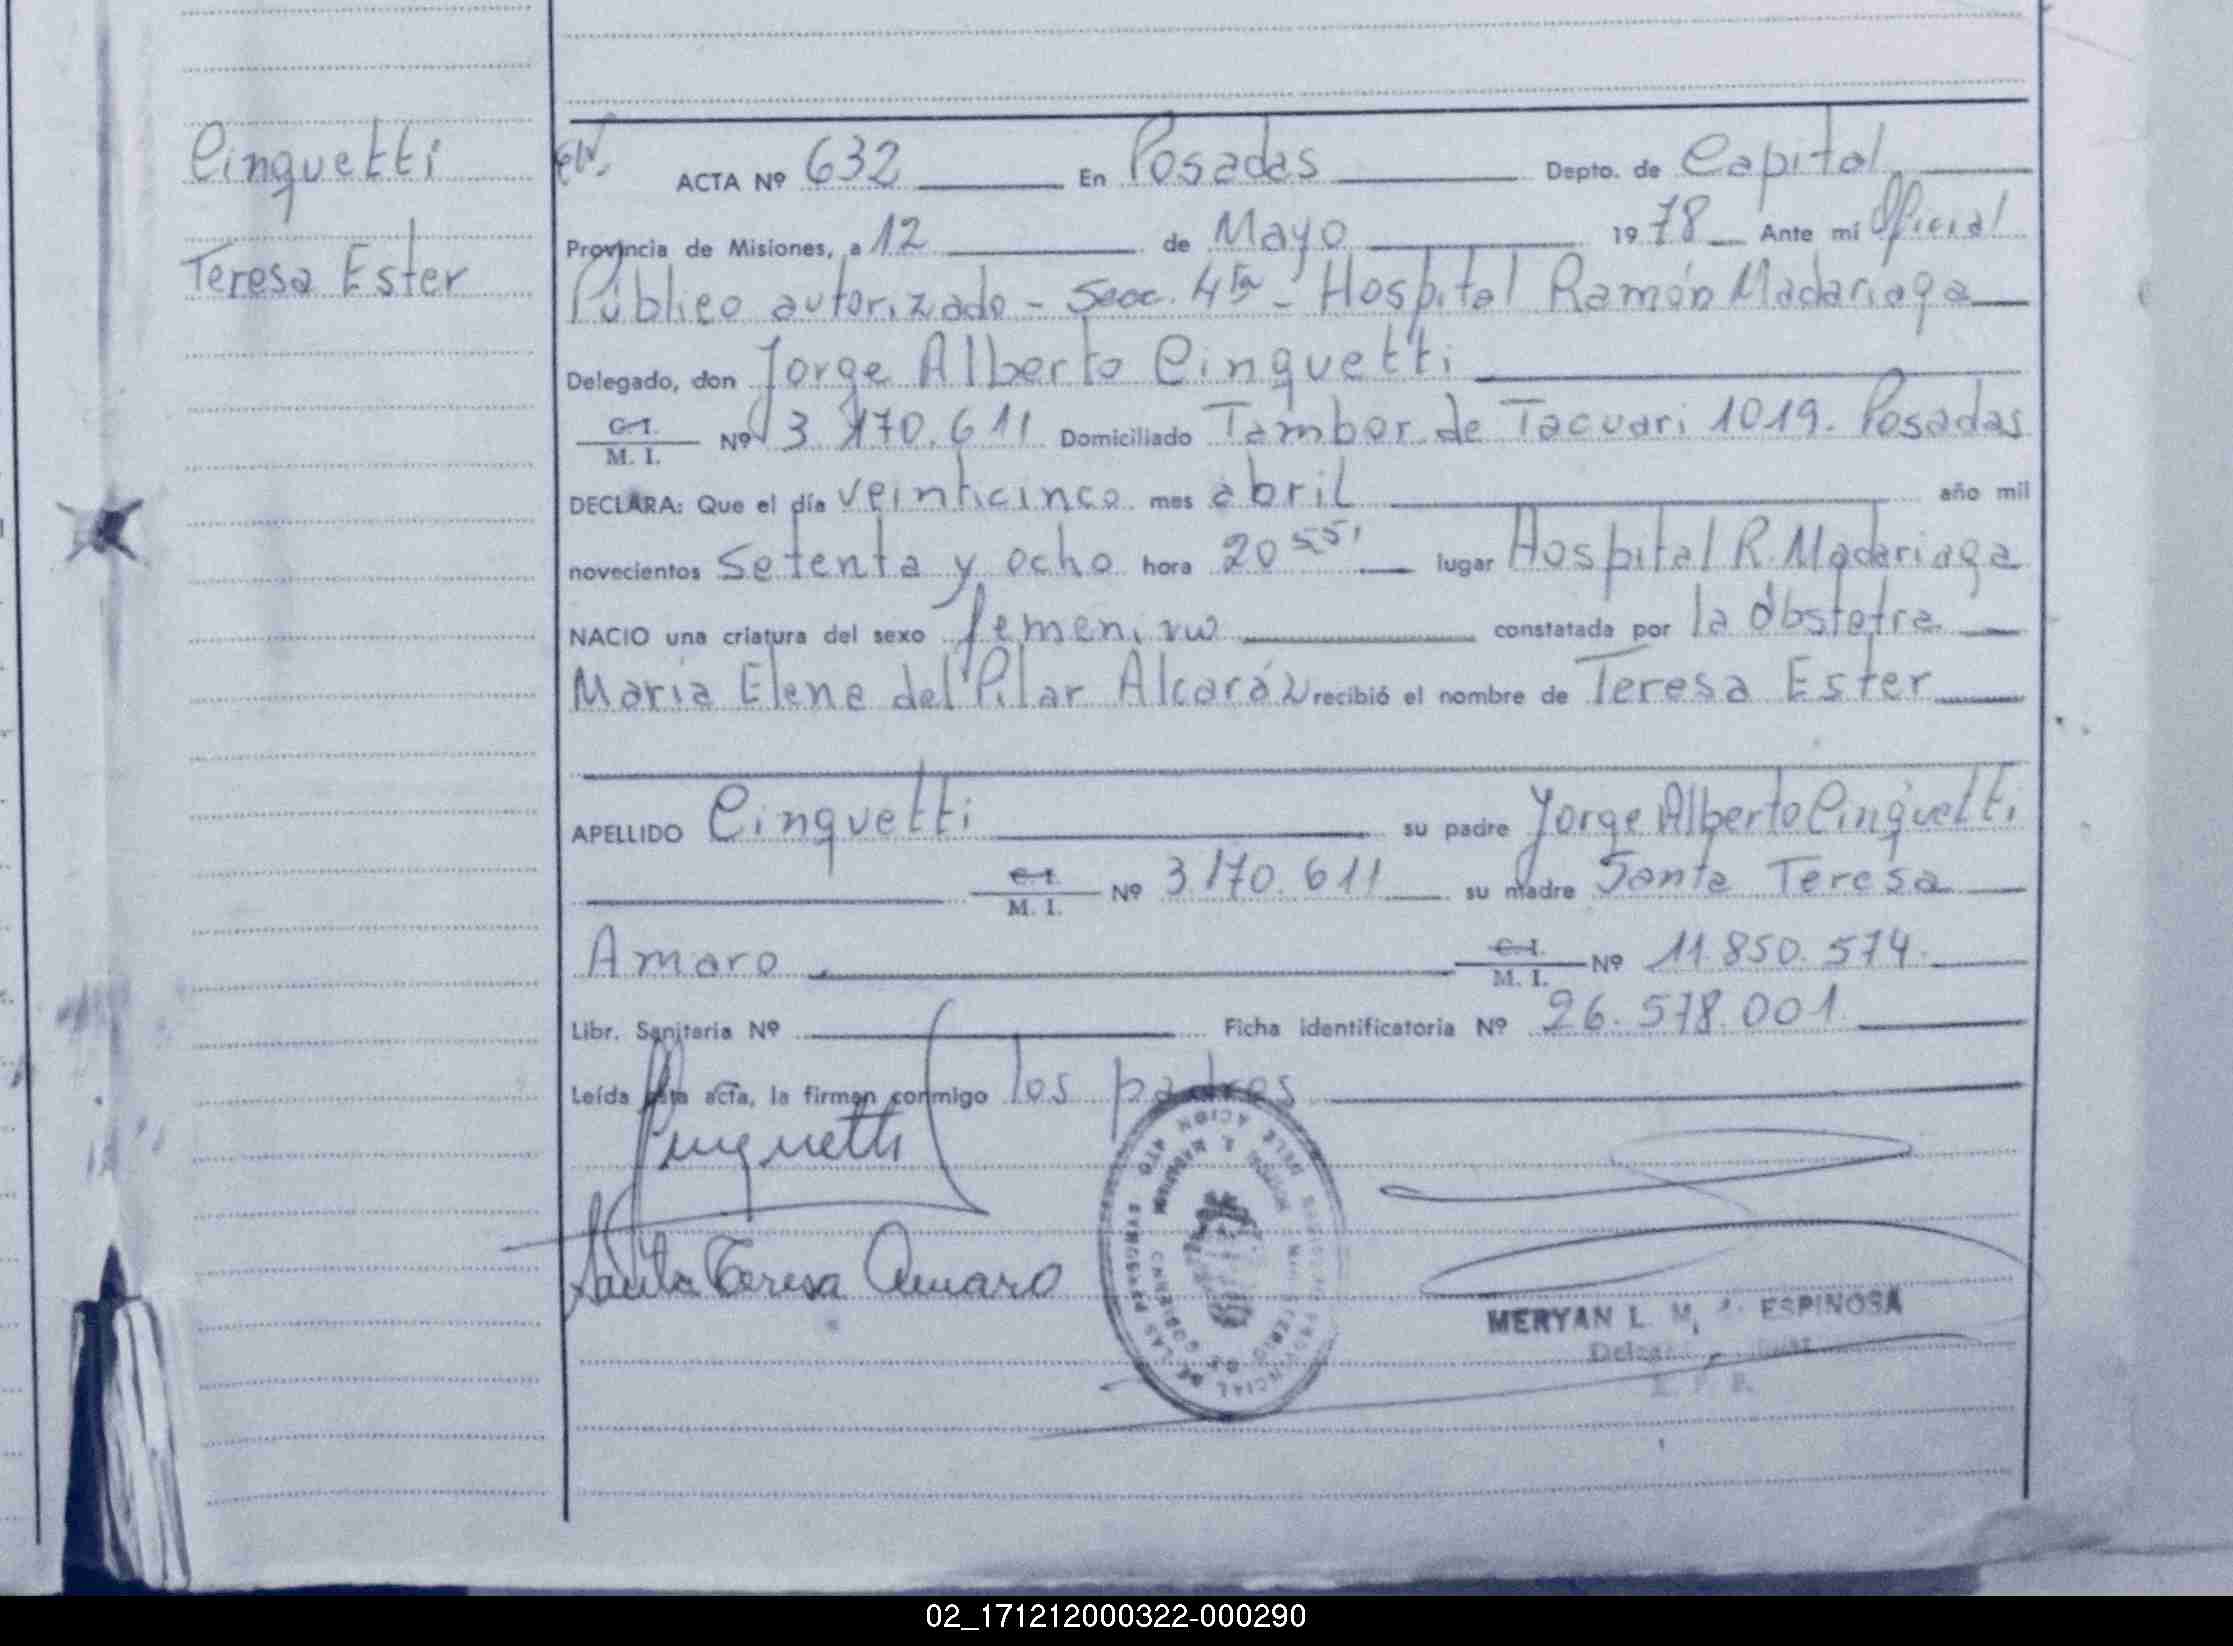 Cinquetti
Teresa Ester
ACTA Nº 632 En Posadas Depto. de Capital
Provincia de Misiones, a 12 de Mayo 1978 Ante mí Oficial
Público autorizado - Secc. 4ta - Hospital Ramón Madariaga
Delegado, don Jorge Alberto Cinquetti
C.I.
M. I. Nº 3.170.611 Domiciliado Tambor de Tacuari 1019. Posadas
DECLARA: Que el día veinticinco mes abril año mil
novecientos setenta y ocho hora 20 55' lugar Hospital R. Madariaga
NACIO una criatura del sexo femenino constatada por la Obstetra
María Elena del Pilar Alcaráz recibió el nombre de Teresa Ester
APELLIDO Cinquetti su padre Jorge Alberto Cinquetti
C.I.
M. I. Nº 3.170.611 su madre Santa Teresa
Amaro C.I.
M. I. Nº 11.850.574.
Libr. Sanitaria Nº Ficha identificatoria Nº 26.578.001
Leída esta acta, la firman conmigo los padres
Cinquetti
Santa Teresa Amaro
MERYAN L. M. ESPINOSA
02_171212000322-000290